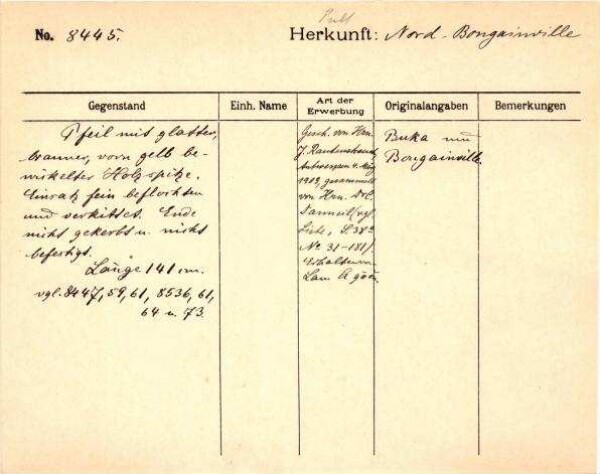 No. 8445.
Herkunft: Nord-Bougainville
Gegenstand
Einh. Name
Art der Erwerbung
Originalangaben
Bemerkungen
Pfeil mit glatter,
brauner, vorn gelb be-
wickelter Holzspitze.
Einsatz fein beflochten
und verkittet. Ende
nicht gekerbt u. nicht
befestigt.
Länge 141 cm.
vgl. 8447, 59, 61, 8536, 61,
64 u. 73.
Gesch. von Hrn.
J. Rautenstrauch,
Antwerpen
1909, gesammelt
von Hrn.
(vgl.
Liste, S. 38
No 31-181)
Erhalten
Buka und
Bougainville.